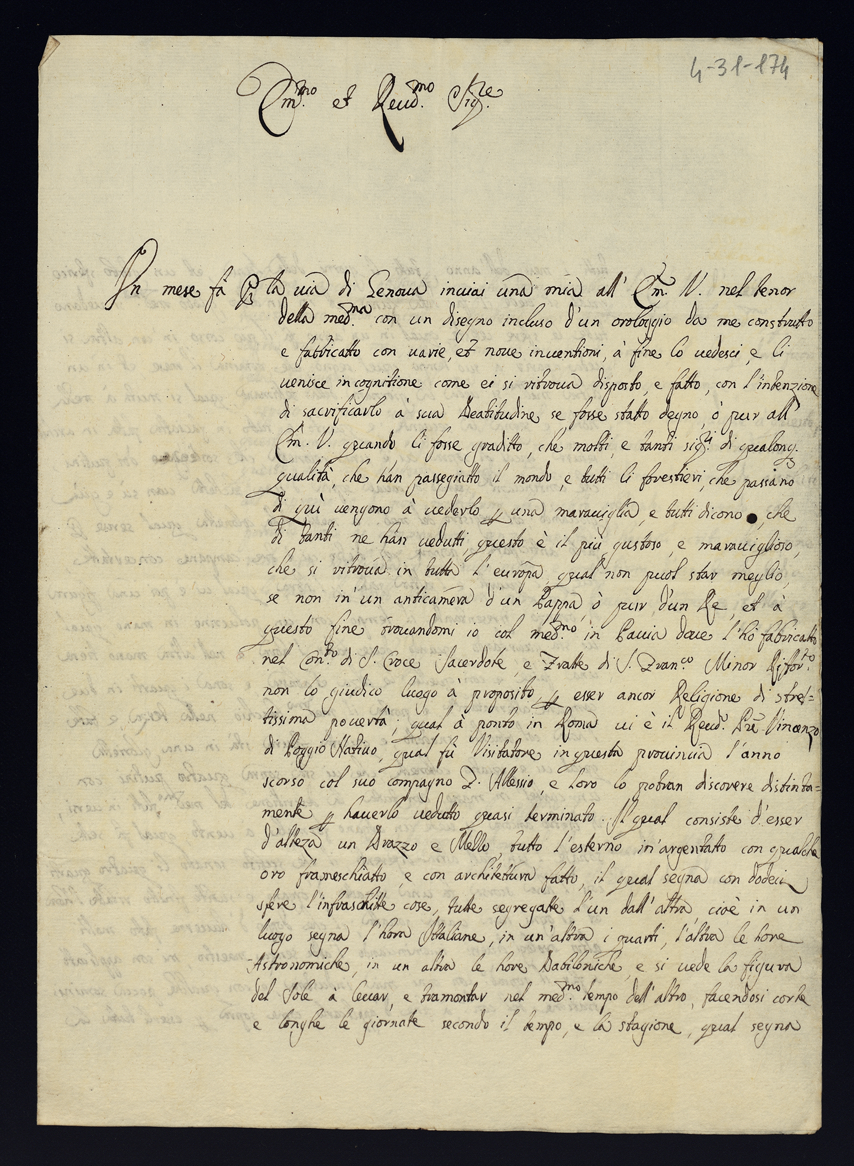 4-31-174
Em.mo et Reud.mo Sig.re
Un mese fà P la uia di Genoua inuiai una mia all' Em. V. nel tenor
della med.ma con un disegno incluso d'un orologgio da me construtto
e fabbricatto con uarie, et noue inuentioni, à fine lo uedesci, e li
uenisce in cognitione come ei si ritroua disposto, e fatto, con l'intenzione
di sacrificarlo à sua Beatitudine se fosse statto degno, ò pur all'
Em. V. quando li fosse graditto, che molti, e tanti sig.ri di qualonq.
qualità, che hàn passegiatto il mondo, e tutti li forestieri, che passano
di quì uengono à uederlo p una marauiglia, e tutti dicono, che
di tanti ne han uedutti questo è il più gustoso, e marauiglioso,
che si ritroua in tutta l'europa, qual non puol star meglio,
se non in un anticamera d'un Pappa, ò pur d'un Re, et à
questo fine trouandomi io col med.mo in Pauia doue l'hò fabricatto
nel Con.to di S. Croce Sacerdote, e Fratte di S. Fran.co Minor Rifor.to
non lo giudico luogo à proposito, p esser ancor Religione di stret=
tissima pouertà; qual à ponto in Roma ui è il Reud. Prè Vincenzo
di Poggio Natiuo, qual fù Visitatore in questa prouincia l'anno
scorso col suo compagno F. Allessio, e loro lo potran discorere distinta=
mente p hauerlo ueduto quasi terminato. Il qual consiste d'esser
d'alteza un Brazzo e Mello, tutto l'esterno in'argentatto con qualche
oro frameschiatto, e con architettura fatto, il qual segna con dodeci
sfere l'infrascritte cose, tutte segregate l'un dall'altra cioè in un
luogo segna l'hora Ittaliane, in un'altra i quarti, l'altra le hore
Astronomiche, in un altra le hore Babiloniche, e si uede la figura
del Sole à leuar, e tramontar nel med.mo tempo dell'altro, facendosi corte
e longhe le giornate secondo il tempo, e la stagione, qual segna